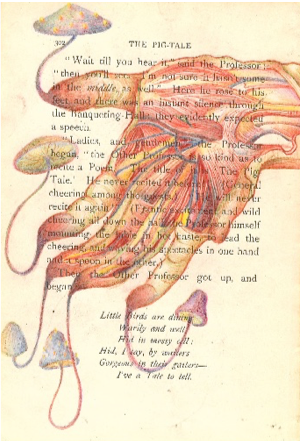 THE PIG-TALE
"Wait till you hear it," said the Professor:
"then you'll see. I'm not sure it hasn't some
in the middle, as well." Here he rose to his
feet, and there was an instant silence through
the Banqueting-Hall: they evidently expected
a speech.
"Ladies, and gentlemen," the Professor
began, "the Other Professor is so kind as to
recite a Poem. The title of it is 'The Pig-
Tale.' He never recited it before! (General
cheering among the guests.) He will never
recite it again!" (Frantic excitement, and wild
cheering all down the hall, the Professor himself
mounting the table in hot haste, to lead the
cheering, and waving his spectacles in one hand
and a spoon in the other.)
Then the Other Professor got up, and
began:
Little Birds are dining
Warily and well,
Hid in mossy cell:
Hid, I say, by waiters
Gorgeous in their gaiters—
I've a Tale to tell.